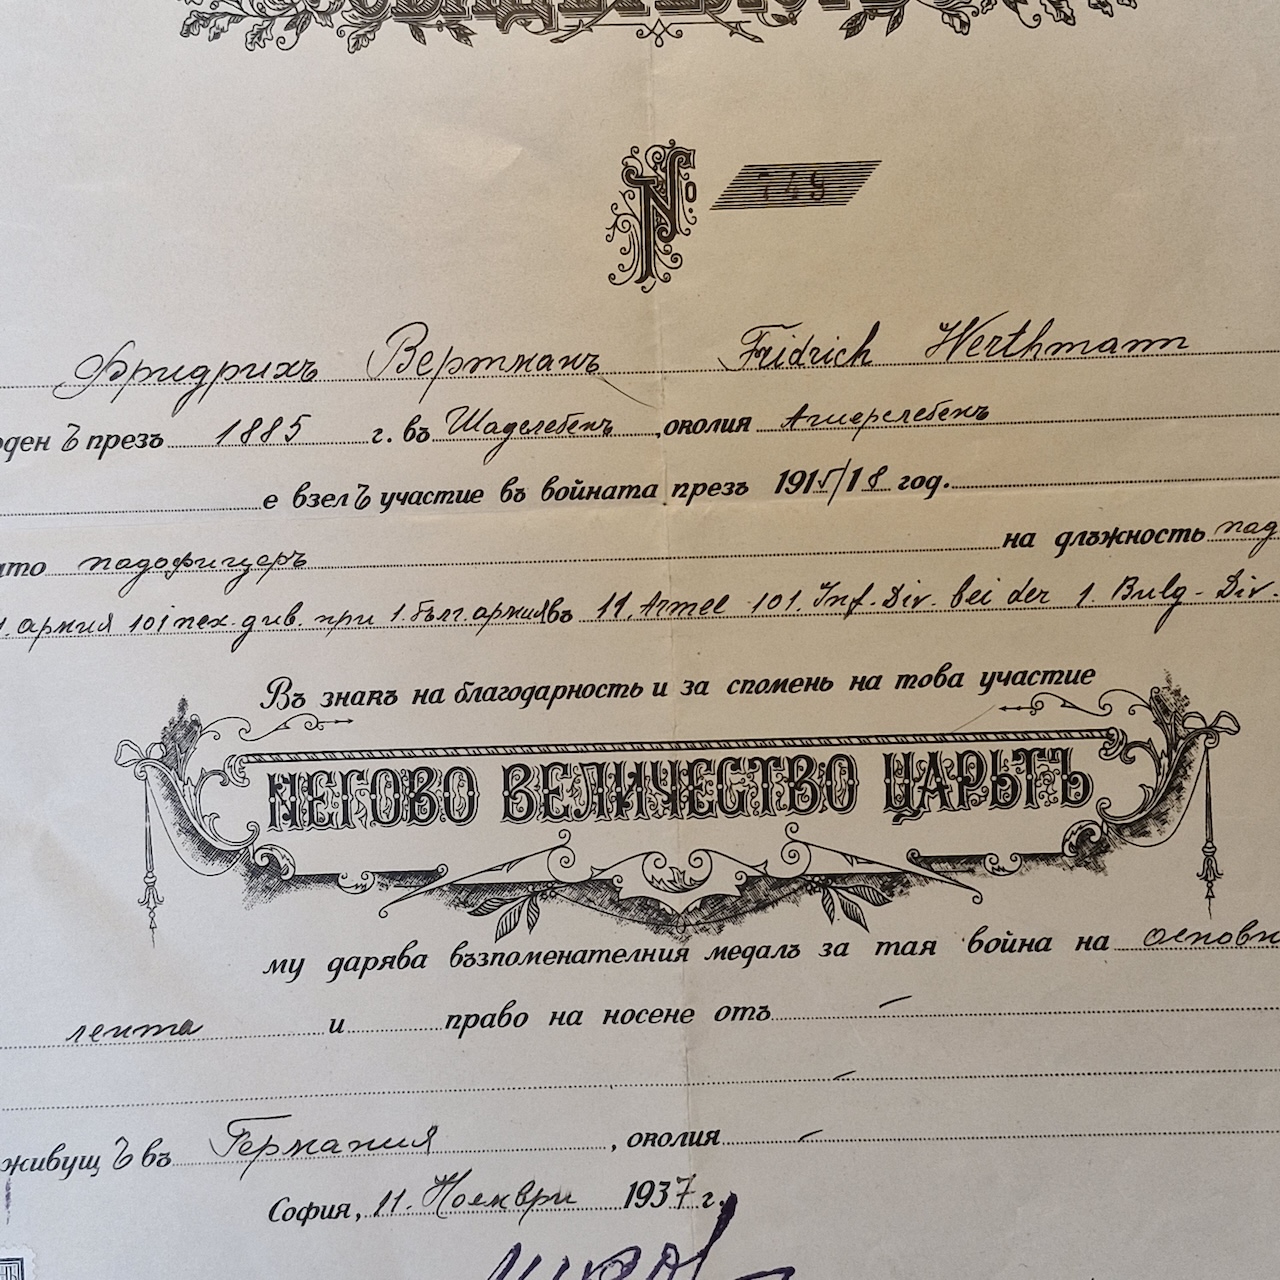 № 749
Фридрихъ Вертманъ Fridrich Werthmann
ден ъ презъ 1885 г. въ Шаделебенъ, околия Ашерслебенъ
е взелъ участие въ войната презъ 1915/18 год.
ато подофицеръ на длъжность под
1. армия 101 пех. див. при 1. бълг. армия въ 11. Armee 101. Inf. Div. bei der 1. Bulg. Div.
Въ знакъ на благодарность и за споменъ на това участие
НЕГОВО ВЕЛИЧЕСТВО ЦАРЬТЪ
му дарява възпоменателния медалъ за тая война на основн
лента и право на носене отъ
живущ ъ въ Германия, околия
София, 11. Ноември 1937 г.